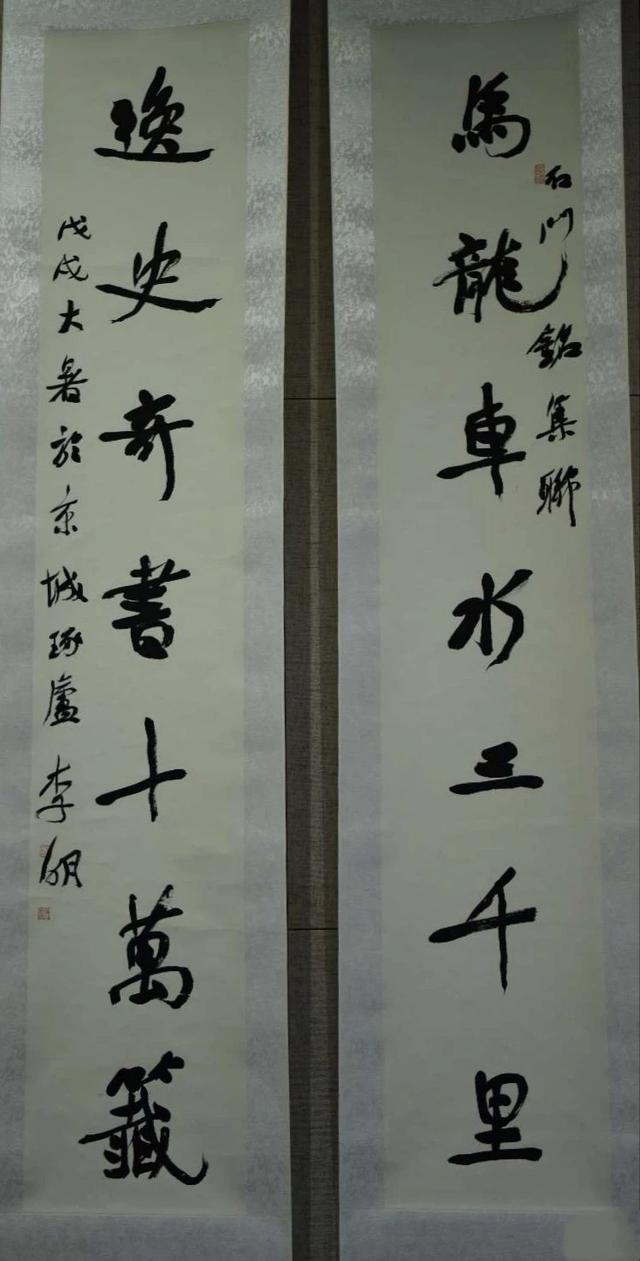 馬龍車水三千里
石門銘集聯
逸史奇書十萬籤
戊戌大暑於京城琢廬李明